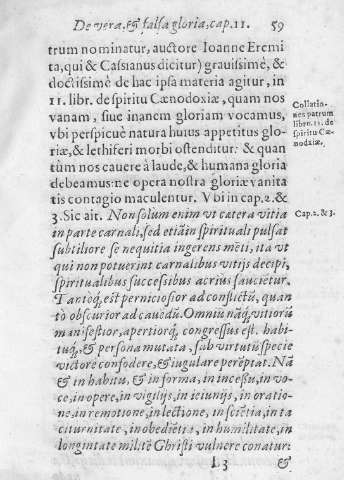 De vera, & falsa gloria, cap. 11. 59
trum nominatur, auctore Ioanne Eremi
ta, qui & Cassianus dicitur) grauissimè, &
doctissimè de hac ipsa materia agitur, in
11. libr. de spiritu Cænodoxiæ, quam nos
vanam, siue inanem gloriam vocamus,
vbi perspicuè natura huius appetitus glo-
riæ, & lethiferi morbi ostenditur: & quan
tùm nos cauere à laude, & humana gloria
debeamus: ne opera nostra gloriæ vanita
tis contagio maculentur. Vbi in cap. 2. &
3. Sic ait. Non solum enim vt cætera vitia
in parte carnali, sed etiã in spirituali pulsat
subtiliore se nequitia ingerens mẽti, ita vt
qui non potuerint carnalibus vitijs decipi,
spiritualibus successibus acrius saucietur.
Tantoq́; est perniciosior ad conflictũ, quan
tò obscurior ad cauẽdũ. Omniũ nãq́; vitiorũ
manifestior, apertiorq́; congressus est. habi-
tuq́;, & persona mutata, sub virtutũ specie
victorẽ confodere, & iugulare perẽptat. Nã
& in habitu, & in forma, in incessu, in vo-
ce, in opere, in vigilijs, in ieiunijs, in oratio-
ne, in remotione, in lectione, in sciẽtia, in ta
citurnitate, in obediẽtia, in humilitate, in
longinitate militẽ Christi vulnere conatur:
L 3 &
Collatio-
nes patrum
libro. 11. de
spiritu Cæ-
nodxiæ,
Cap. 2. & 3.